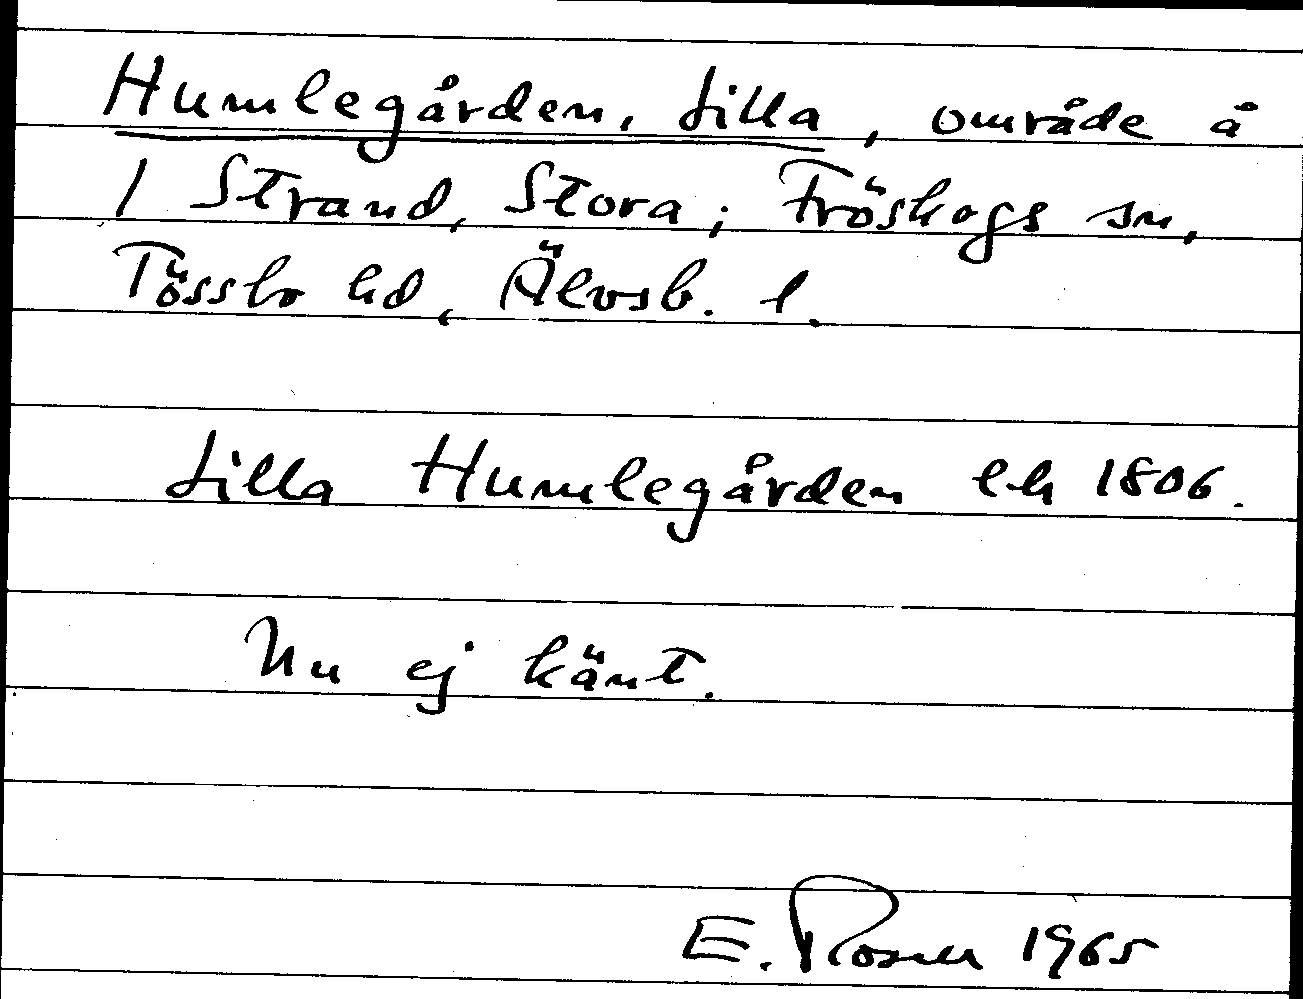 Humlegården, Lilla, område å
1 Strand, Stora; Fröskogs sn,
Tössbo hd, Älvsb. l.
Lilla Humlegården lh 1806.
Nu ej känt.
E. Rosell 1965